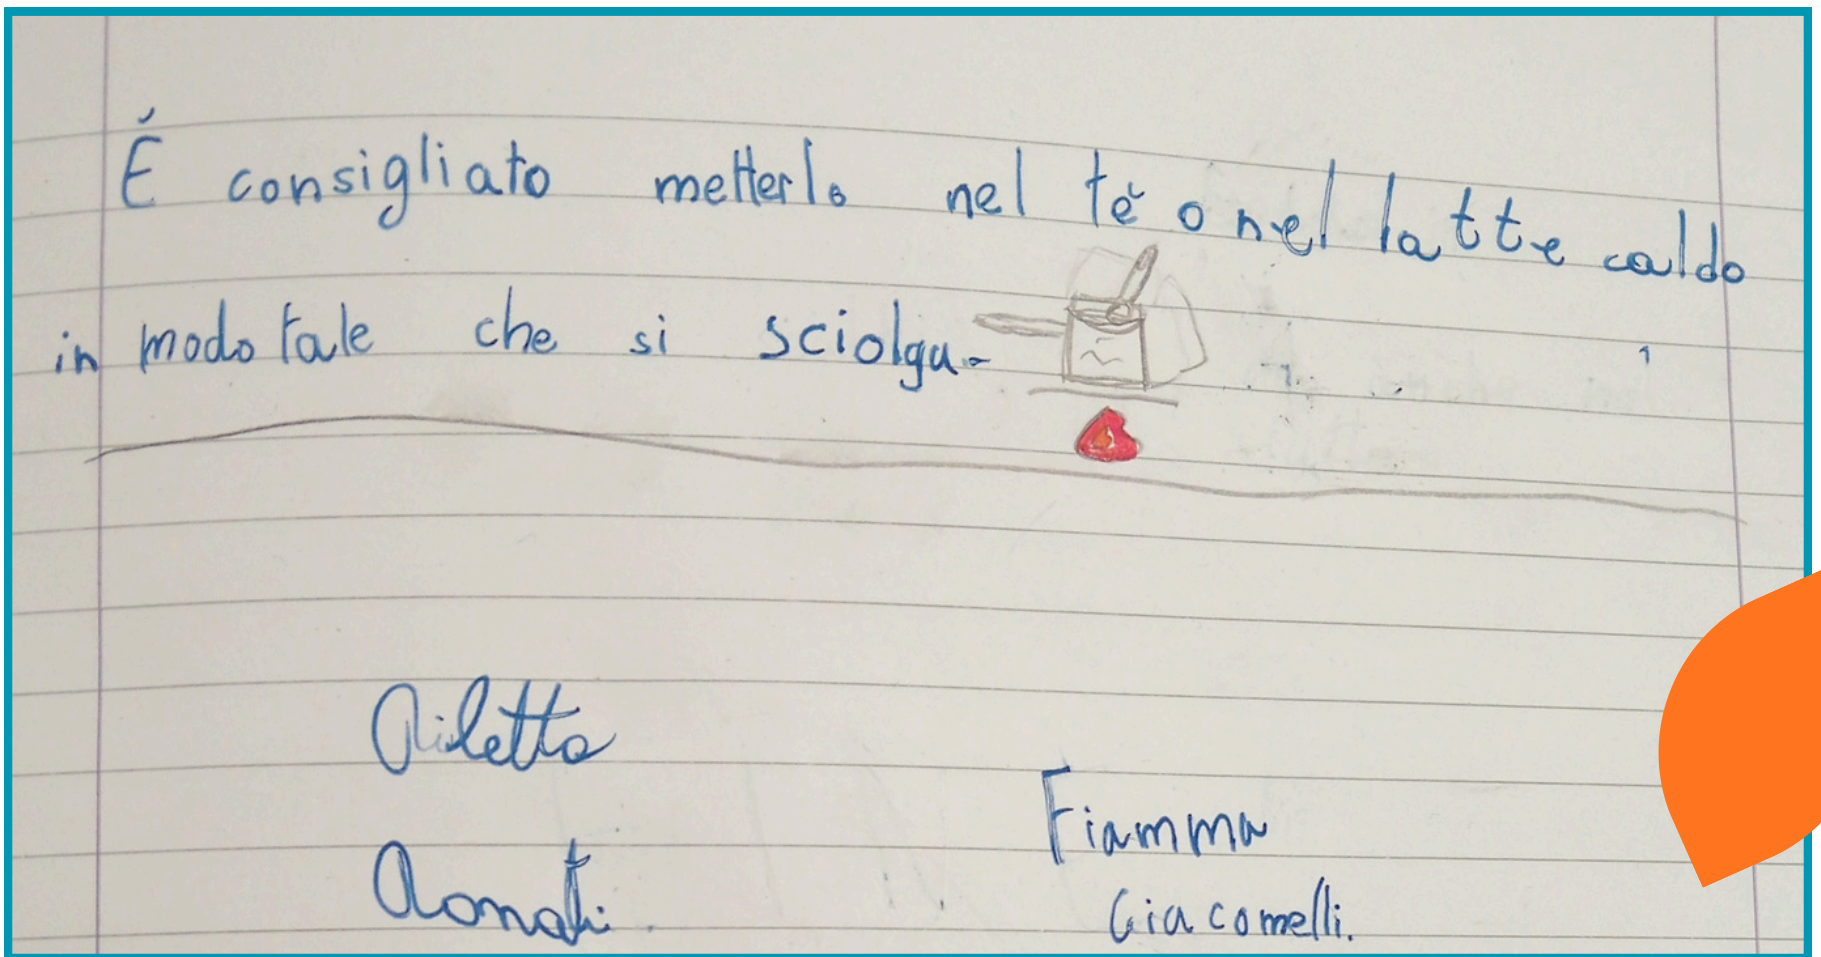 É consigliato metterlo nel tè o nel latte caldo
in modo tale che si sciolga.
Diletta
Donati.
Fiamma
Giacomelli.